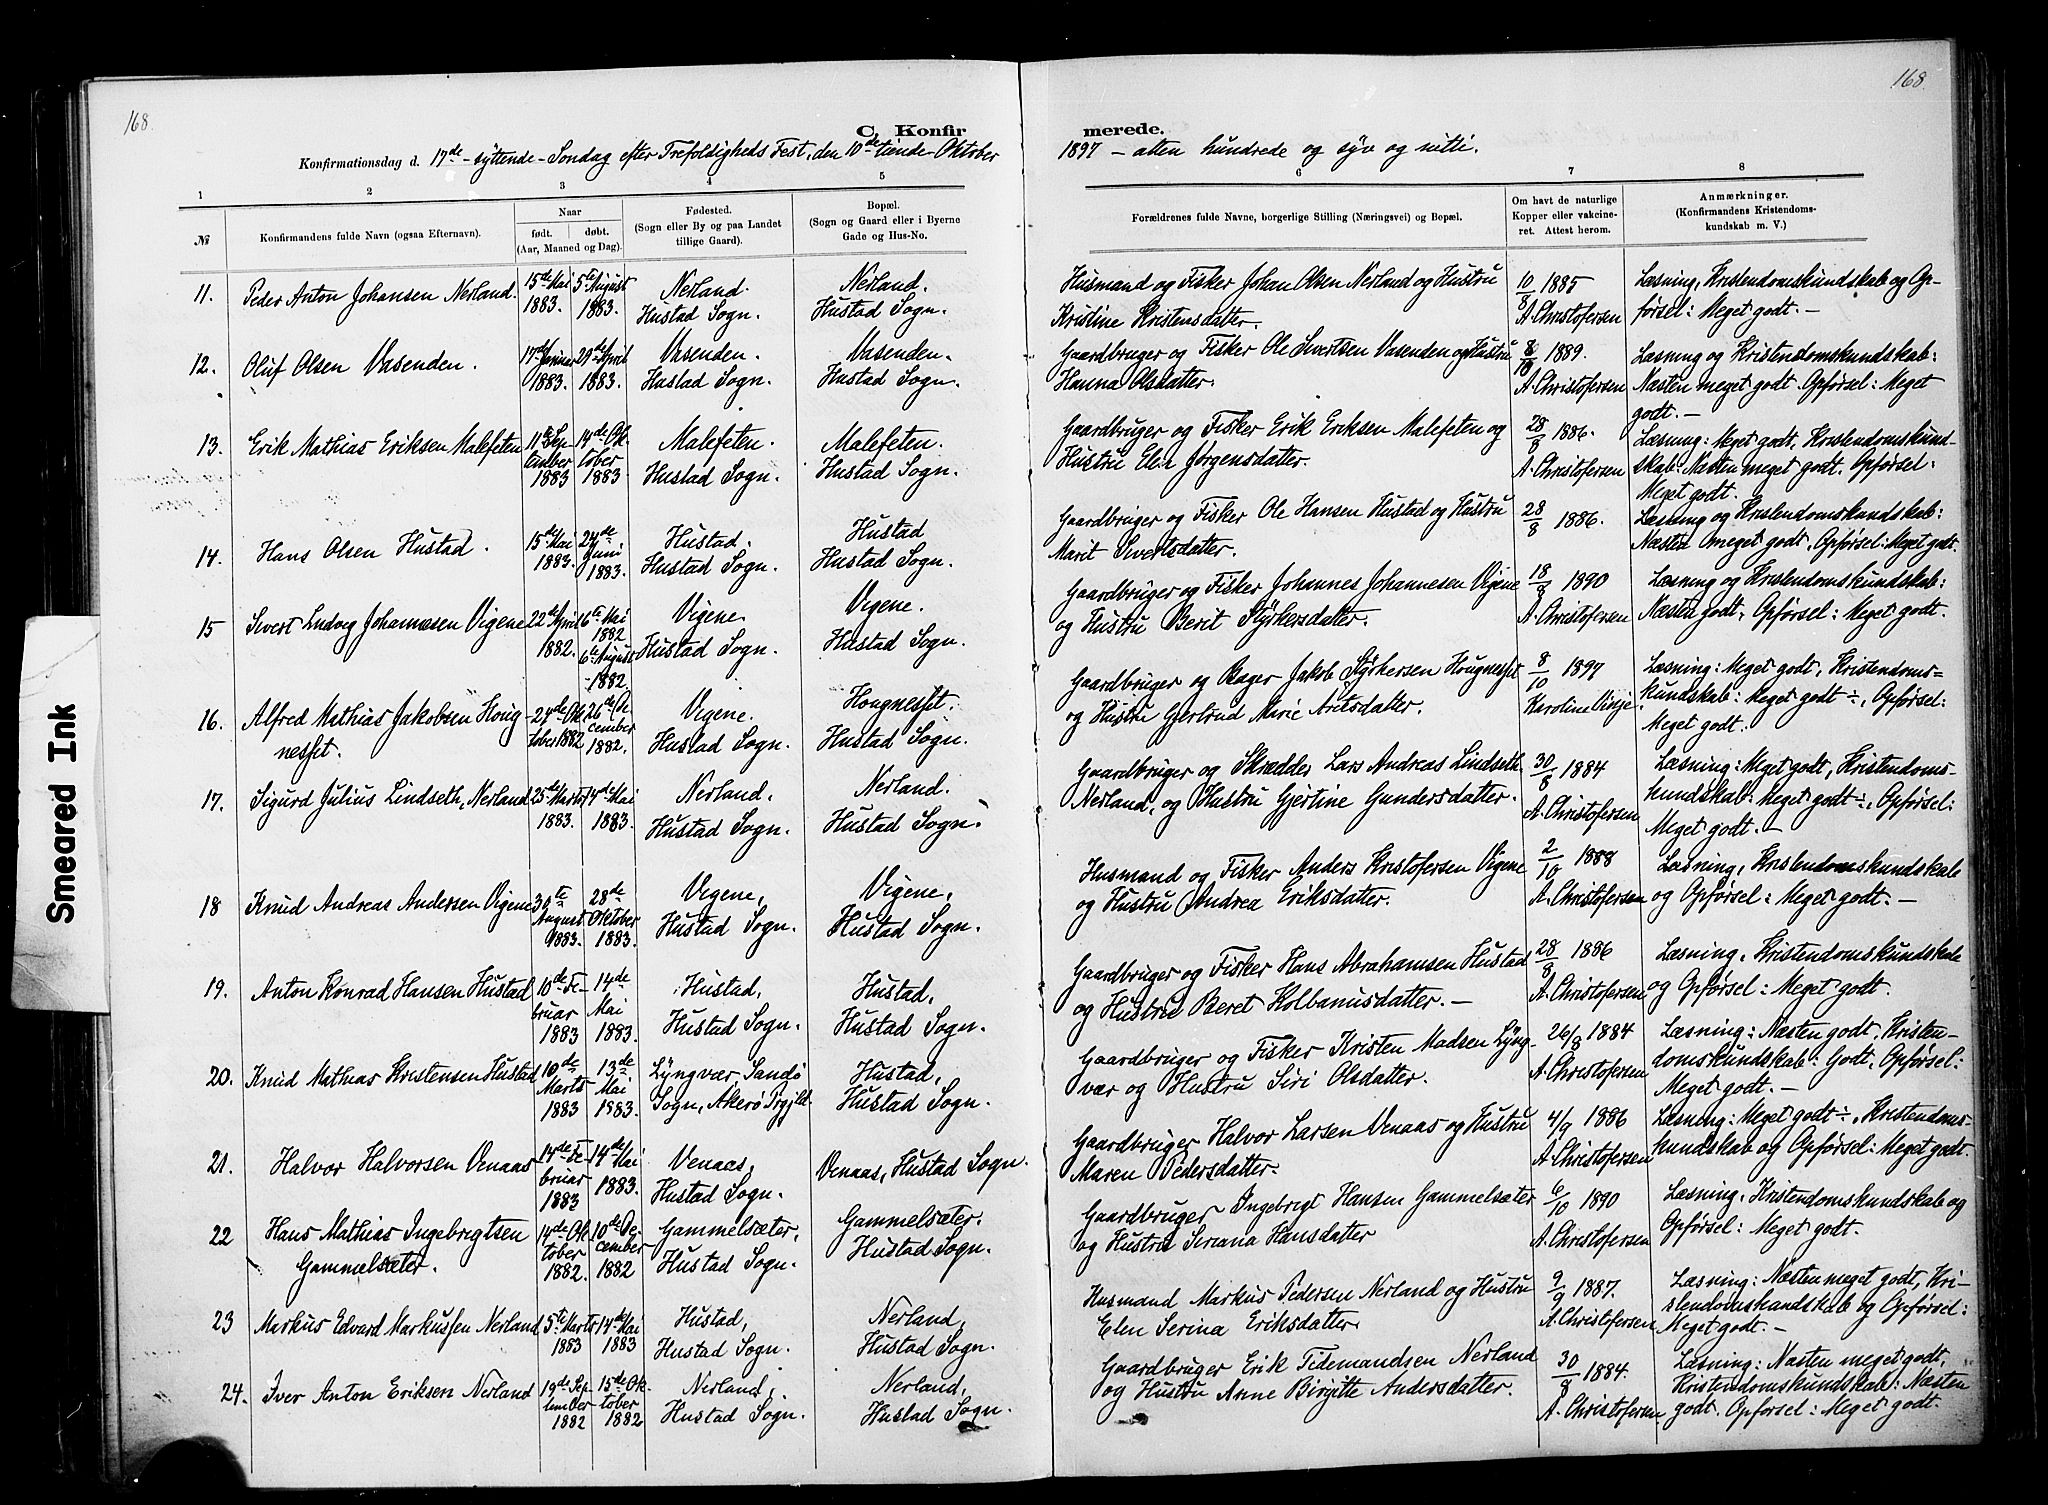 168.
168.
C. Konfirmerede.
Konfirmationsdag d. 17de - syttende - Søndag efter Trefoldigheds Fest, den 10de tiende Oktober 1897 - atten hundrede og syv og nitti.
1 2 3 4 5 6 7 8
№
Konfirmandens fulde Navn (ogsaa Efternavn).
Naar
født. døbt.
(Aar, Maaned og Dag).
Fødested.
(Sogn eller By og paa Landet
tillige Gaard).
Bopæl.
(Sogn og Gaard eller i Byerne
Gade og Hus-No.
Forældrenes fulde Navne, borgerlige Stilling (Næringsvei) og Bopæl.
Om havt de naturlige
Kopper eller vakcine-
ret. Attest herom.
Anmærkninger.
(Konfirmandens Kristendoms-
kundskab m. V.)
11. Peder Anton Johansen Nerland. 15de Mai 1883. 5te August 1883. Nerland. Hustad Sogn. Nerland. Hustad Sogn.
Husmand og Fisker Johan Olsen Nerland og Hustru
Kristine Kristensdatter.
10/8 1885
A. Christofersen
Læsning, Kristendomskundskab og Op-
førsel: Meget godt. -
12. Oluf Olsen Vasenden. 17de Januar 1883. 29de April 1883. Vasenden. Hustad Sogn. Vasenden. Hustad Sogn.
Gaardbruger og Fisker Ole Sivertsen Vasenden og Hustru
Hanna Olsdatter.
8/10 1889.
A. Christofersen
Læsning og Kristendomskundskab:
Næsten meget godt. Opførsel: Meget
godt. -
13. Erik Mathias Eriksen Malefeten 11te September 1883 14de Oktober 1883 Malefeten. Hustad Sogn. Malefeten. Hustad Sogn.
Gaardbruger og Fisker Erik Eriksen Malefeten og
Hustru Elen Jørgensdatter.
28/8 1886.
A. Christofersen
Læsning: Meget godt, Kristendomskund-
skab: Næsten meget godt. Opførsel:
Meget godt.
14. Hans Olsen Hustad. 15de Mai 1883. 24de Juni 1883. Hustad. Hustad Sogn. Hustad Hustad Sogn.
Gaardbruger og Fisker Ole Hansen Hustad og Hustru
Marit Sivertsdatter.
28/8 1886.
Læsning og Kristendomskundskab:
Næsten meget godt, Opførsel: Meget godt.
15 Sivert Ludvig Johannesen Vigene 22de April 1882. 16te Mai 1882 6te August 1882 Vigene. Hustad Sogn. Vigene. Hustad Sogn.
Gaardbruger og Fisker Johannes Johannesen Vigene
og Hustru Berit Styrkersdatter.
18/8 1890
A. Christofersen
Læsning og Kristendomskundskab:
Næsten godt, Opførsel: Meget godt.
16. Alfred Mathias Jakobsen Houg-
nesset. 24de Oktober 1882 26de December 1882. Vigene. Hustad Sogn. Hougnesset. Hustad Sogn.
Gaardbruger og Bager Jakob Styrkersen Hougnesset
og Hustru Gjertrud Marie
8/10 1897
Karoline
Læsning: Meget godt, Kristendoms-
kundskab: Meget godt ÷, Opførsel:
Meget godt.
17. Sigurd Julius Lindseth, Nerland 25de Marts 1883. 14de Mai 1883. Nerland, Hustad Sogn. Nerland. Hustad Sogn.
Gaardbruger og Skrædder Lars Andreas Lindseth
Nerland, og Hustru Gjertine Gundersdatter.
30/8 1884
A. Christofersen
Læsning: Meget godt, Kristendoms-
kundskab: Meget godt ÷, Opførsel:
Meget godt. -
18 Knud Andreas Andersen Vigene 30te August 1883. 28de Oktober 1883. Vigene, Hustad Sogn. Vigene, Hustad Sogn.
Husmand og Fisker Anders Kristofersen Vigene
og Hustru Andrea Eriksdatter.
2/10 1888
A. Christofersen
Læsning, Kristendomskundskab
og Opførsel: Meget godt. -
19. Anton Konrad Hansen Hustad 10de Februar 1883 14de Mai 1883. Hustad, Hustad Sogn. Hustad, Hustad Sogn.
Gaardbruger og Fisker Hans Abrahamsen Hustad
og Hustru Beret Kolbanusdatter. -
28/8 1886
A. Christofersen
Læsning, Kristendomskundskab
og Opførsel: Meget godt.
20. Knud Mathias Kristensen Hustad 10de Marts 1883 13de Mai 1883. Lyngvær, Sandø Sogn, Akerø Prgjld. Hustad, Hustad Sogn.
Gaardbruger og Fisker Kristen Madsen Lyng-
vær og Hustru Siri Olsdatter.
26/8 1884
A. Christofersen
Læsning: Næsten godt, Kristen-
domskundskab: Godt, Opførsel:
Meget godt. -
21. Halvor Halvorsen Venaas 14de Februar 1883 14de Mai 1883. Venaas, Hustad Sogn. Venaas, Hustad Sogn.
Gaardbruger Halvor Larsen Venaas og Hustru
Maren Pedersdatter.
4/9 1886
A. Christofersen
Læsning: Meget godt ÷, Kristendoms-
kundskab og Opførsel: Meget godt.
22 Hans Mathias Ingebregtsen
Gammelsæter. 14de Oktober 1882. 10de December 1882 Gammelsæter, Hustad Sogn. Gammelsæter. Hustad Sogn.
Gaardbruger Ingebrigt Hansen Gammelsæter
og Hustru Seriana Hansdatter
6/10 1890
A. Christofersen
Læsning, Kristendomskundskab og
Opførsel: Meget godt.
23 Markus Edvard Markussen Nerland 5te Marts 1883 14de Mai 1883 Hustad, Hustad Sogn. Nerland, Hustad Sogn.
Husmand Markus Pedersen Nerland og Hustru
Elen Serina Eriksdatter
9/9 1887.
A. Christofersen
Læsning: Næsten meget godt, Kri-
stendomskundskab og Opførsel:
Meget godt. -
24. Iver Anton Eriksen Nerland 19de September 1882 15de Oktober 1882 Nerland, Hustad Sogn. Nerland, Hustad Sogn.
Gaardbruger Erik Tidemandsen Nerland
og Hustru Anne Birgitte Andersdatter.
30/8 1884.
A. Christofersen
Læsning: Næsten meget godt,
Kristendomskundskab: Næsten
godt. Opførsel: Meget godt.
Smeared Ink